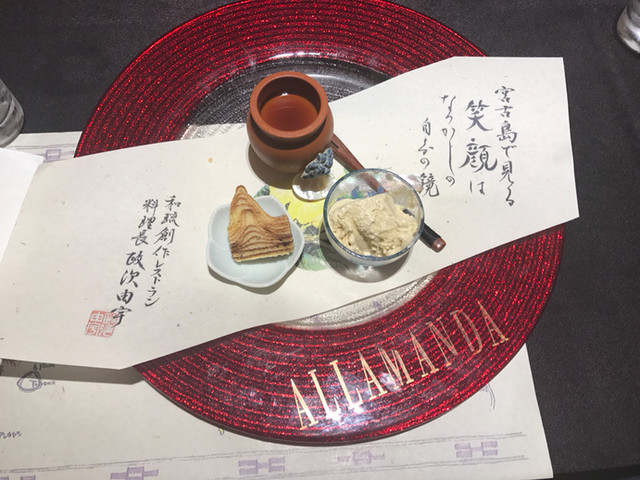 宮古島で見てる
笑顔は
なつかしの
自分の鏡
和琉創作レストラン
料理長
ALLAMANDA